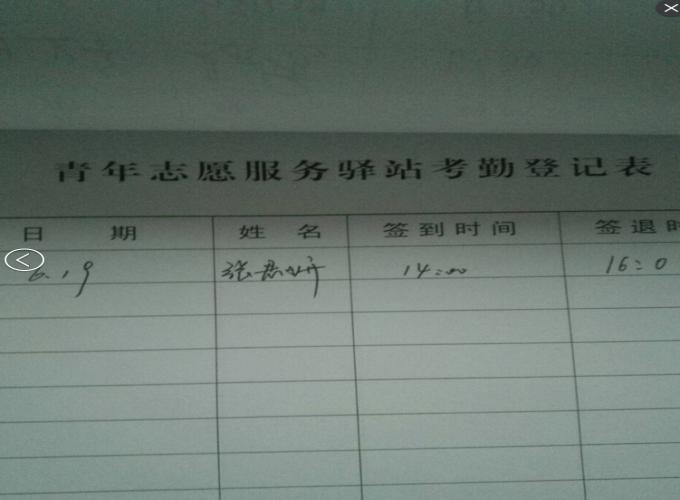 青年志愿服务驿站考勤登记表
日期 姓名 签到时间 签退时
6.19 张 14:00 16:0